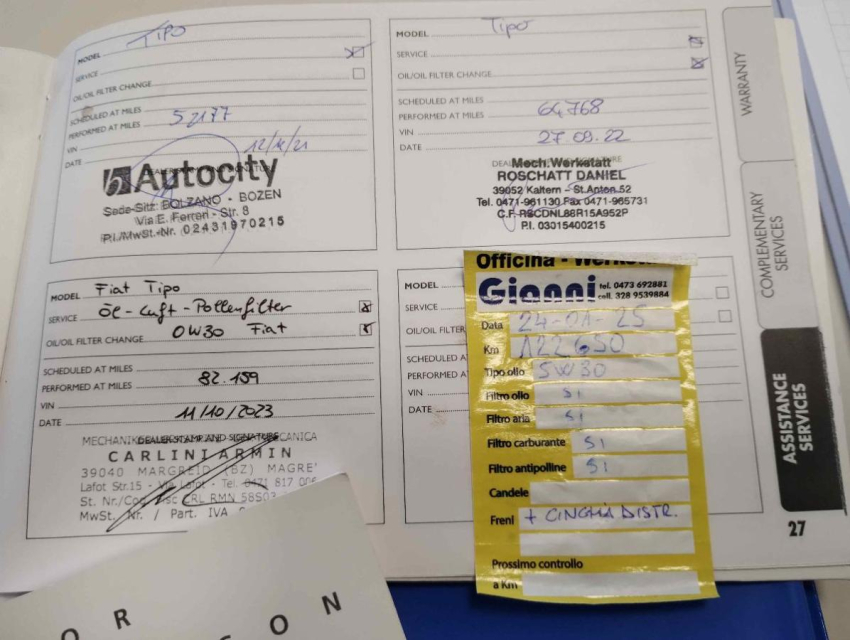 MODEL Tipo
SERVICE
OIL/OIL FILTER CHANGE
SCHEDULED AT MILES
PERFORMED AT MILES 52177
VIN
DATE 12/4/21
Autocity
Sede-Sitz: BOLZANO - BOZEN
Via E. Ferrari - Str. 8
P.I./MwSt.-Nr. 02431970215
MODEL Tipo
SERVICE
OIL/OIL FILTER CHANGE
SCHEDULED AT MILES
PERFORMED AT MILES 64768
VIN
DATE 27.09.22
Mech. Werkstatt
ROSCHATT DANIEL
39052 Kaltern - St. Anton 52
Tel. 0471-961130 Fax 0471-965731
C.F. RSCDNL86R15A952P
P.I. 03015400215
MODEL Fiat Tipo
SERVICE Öl-Luft-Pollenfilter
OIL/OIL FILTER CHANGE 0W30 Fiat
SCHEDULED AT MILES
PERFORMED AT MILES 82.159
VIN
DATE 11/10/2023
DEALER STAMP AND SIGNATURE
CARLINI ARMIN
39040 MARGREID (BZ) MAGRE'
Lafot Str.15 - Via Lafot - Tel. 0471 817 006
MwSt. Nr. / Part. IVA
MODEL
SERVICE
OIL/OIL FILTER
SCHEDULED A
PERFORMED A
VIN
DATE
Officina - Werkst
Gianni tel. 0473 692881
cell. 328 9539884
Data 24-01-25
Km 122650
Tipo olio 5W30
Filtro olio SI
Filtro aria SI
Filtro carburante SI
Filtro antipolline SI
Candele
Freni + CINGHIA DISTR.
Prossimo controllo
a Km
WARRANTY
COMPLEMENTARY
SERVICES
ASSISTANCE
SERVICES
27
O R
S O N